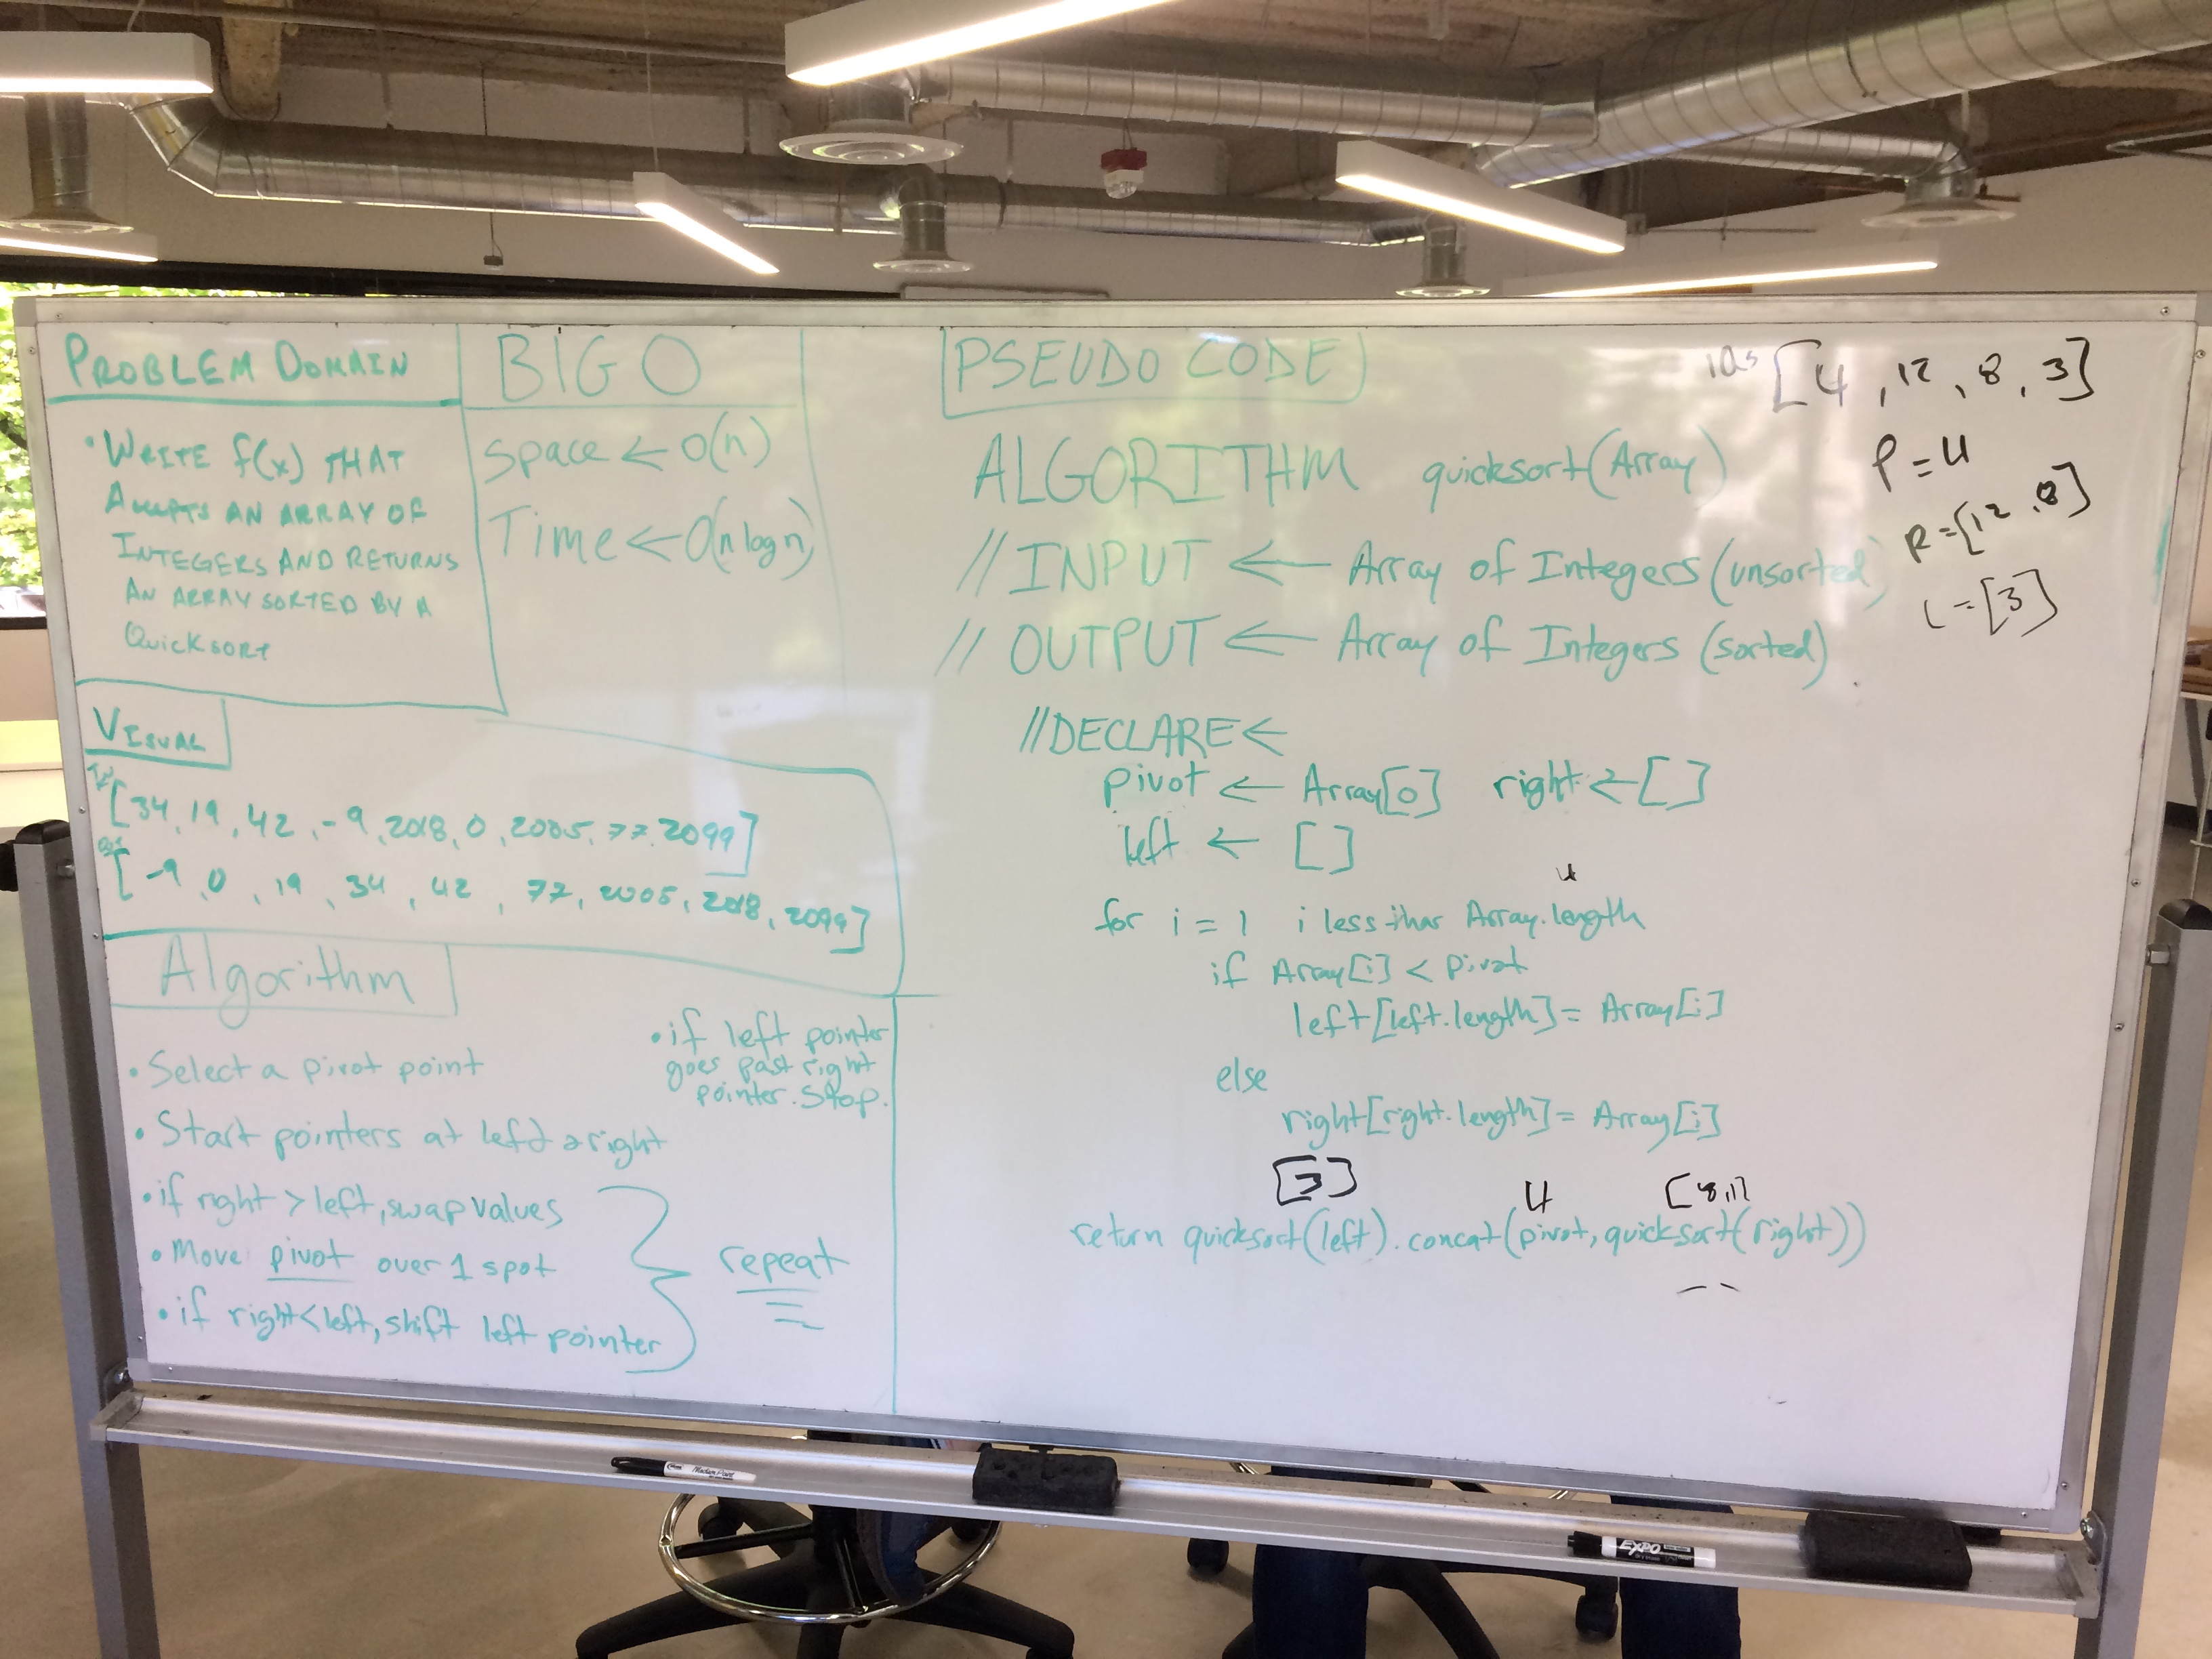 PROBLEM DOMAIN
• WRITE f(x) THAT
ACCEPTS AN ARRAY OF
INTEGERS AND RETURNS
AN ARRAY SORTED BY A
Quicksort
BIG O
Space ← O(n)
Time ← O(n log n)
VISUAL
[34, 19, 42, -9, 2018, 0, 2005, 77, 2099]
[-9, 0, 19, 34, 42, 77, 2005, 2018, 2099]
Algorithm
• Select a pivot point
• Start pointers at left & right
• if right > left, swap values
• Move pivot over 1 spot
• if right < left, shift left pointer
repeat
• if left pointer
goes past right
pointer. Stop.
PSEUDO CODE
ALGORITHM quicksort(Array)
// INPUT ← Array of Integers (unsorted)
// OUTPUT ← Array of Integers (sorted)
// DECLARE ←
pivot ← Array[0] right ← []
left ← []
4
for i = 1 i less than Array.length
if Array[i] < pivot
left[left.length] = Array[i]
else
right[right.length] = Array[i]
[3] 4
return quicksort(left).concat(pivot, quicksort(right))
[4, 12, 8, 3]
P = 4
R = [12, 8]
L = [3]
EXPO